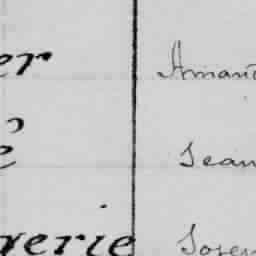 er Amand
é Jean
rerie Josep